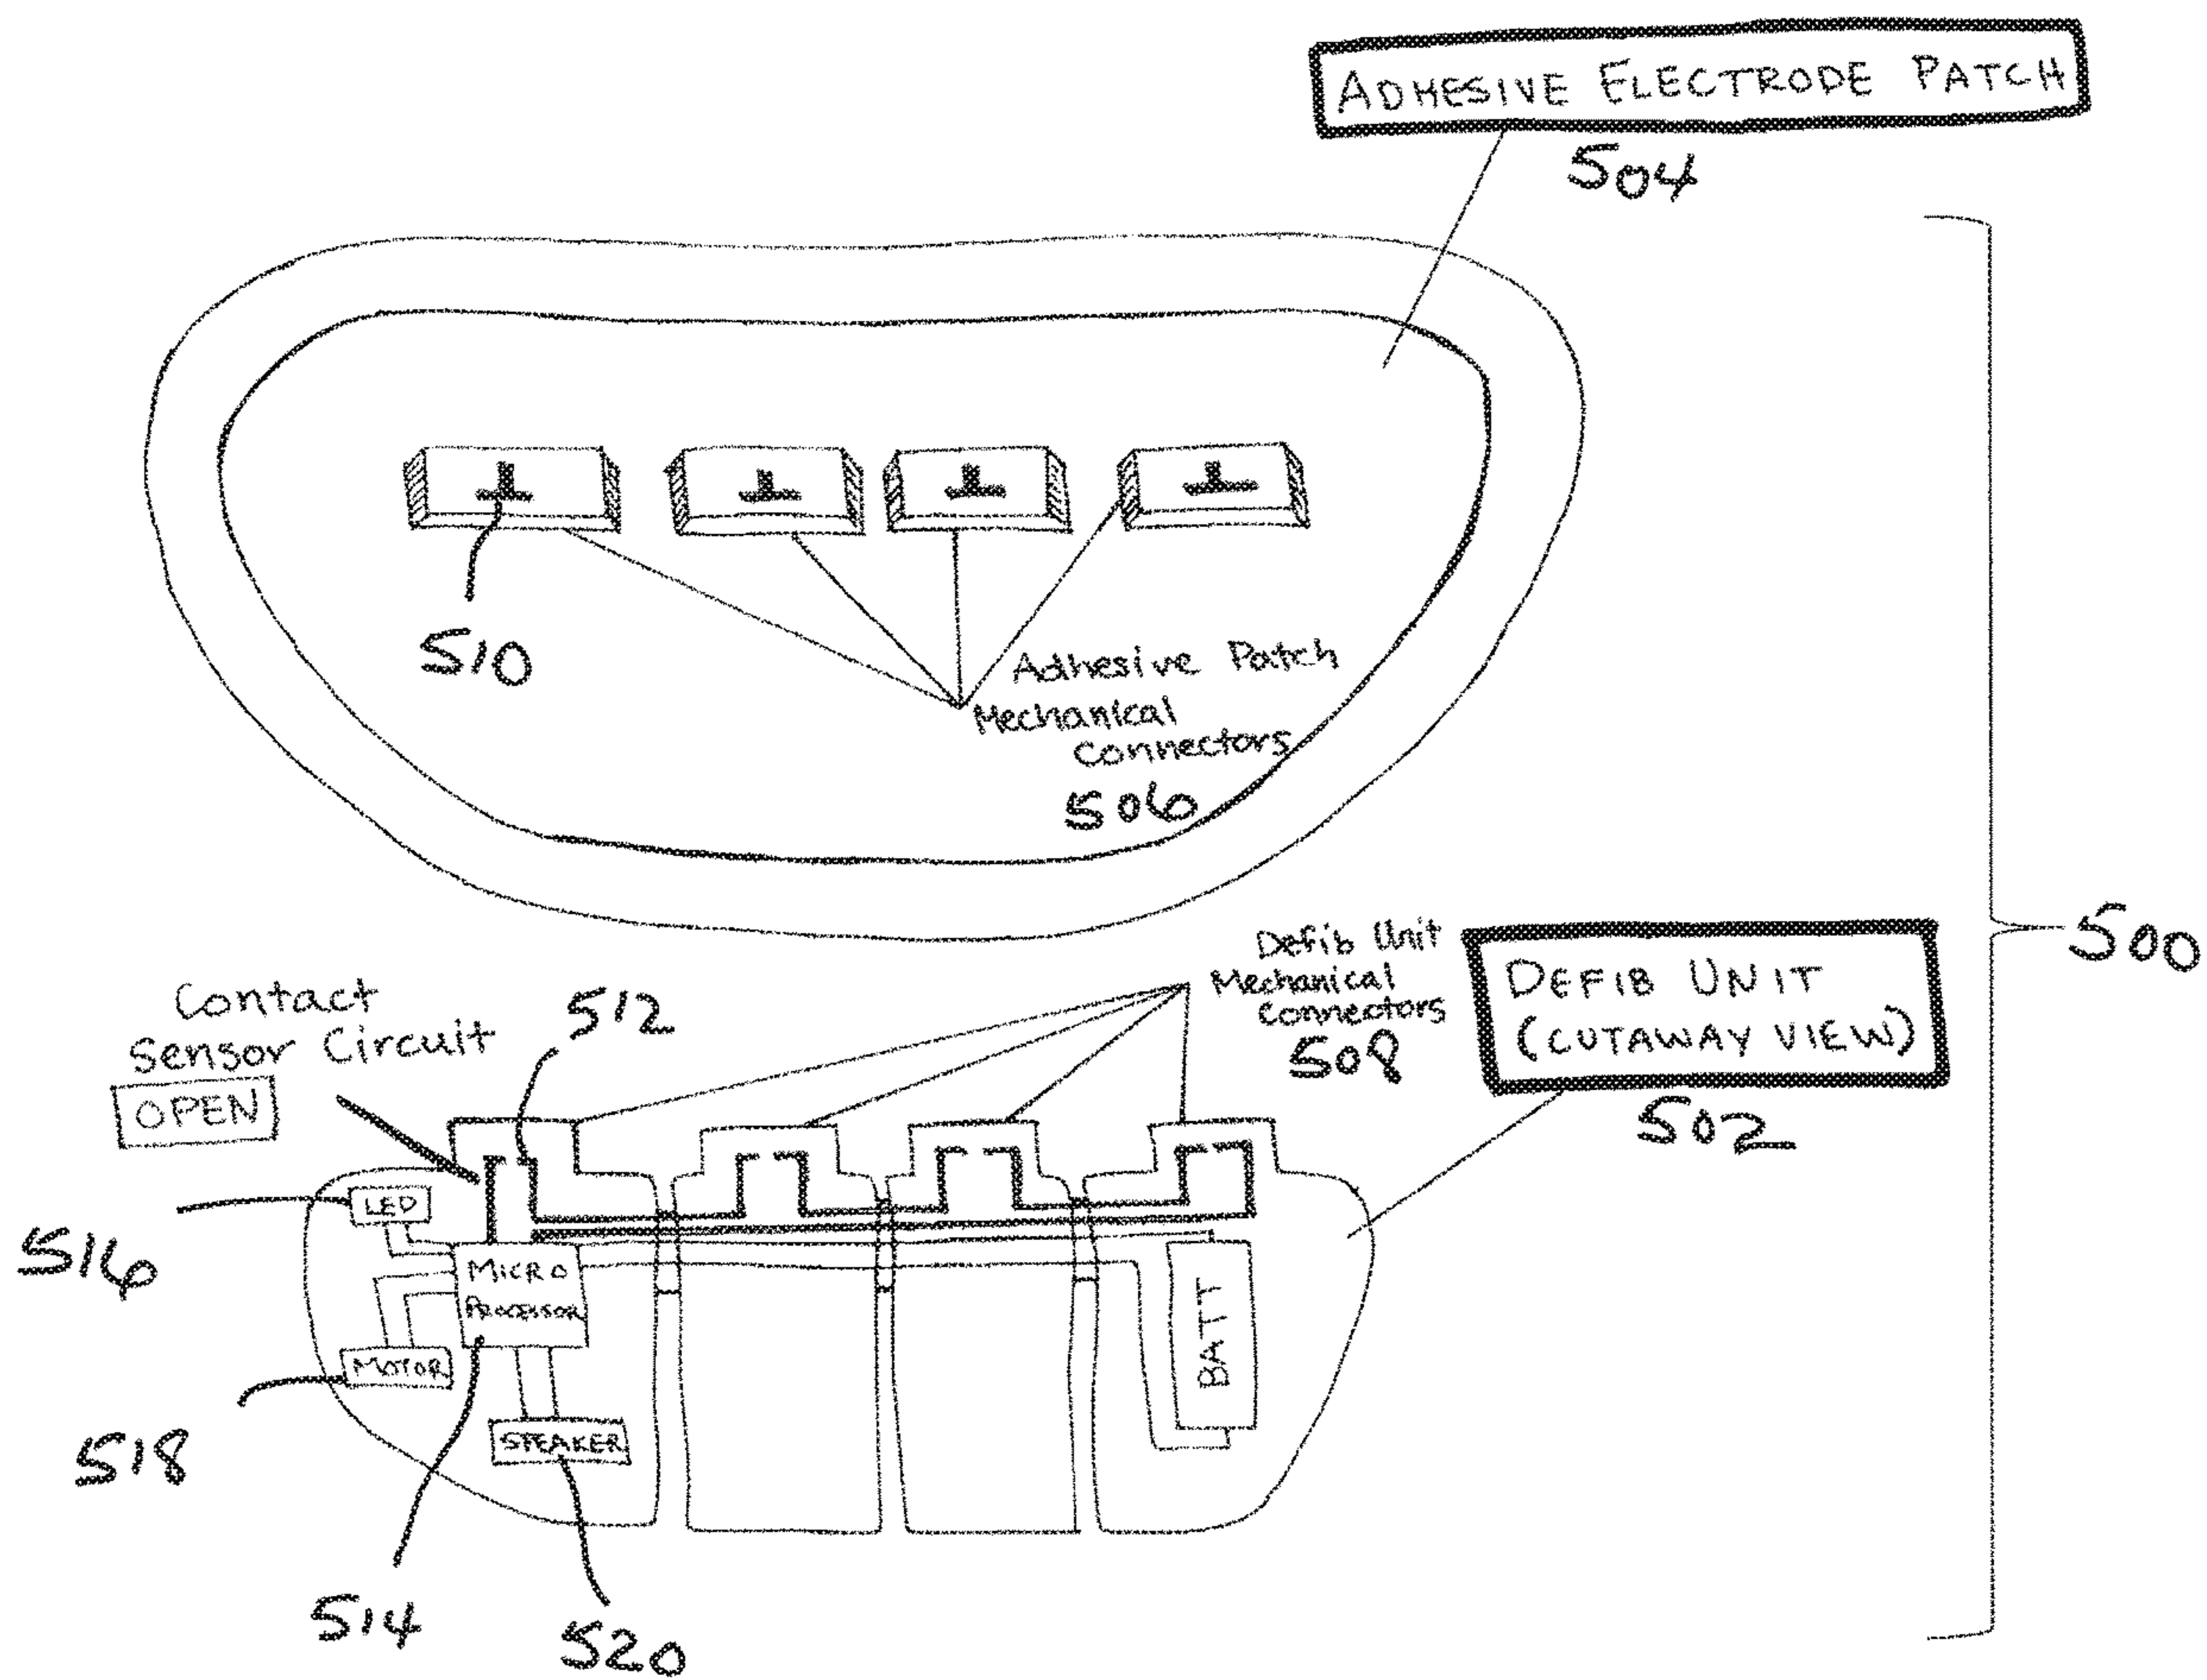 ADHESIVE ELECTRODE PATCH
504
510
Adhesive Patch
Mechanical
Connectors
506
500
Defib Unit
Mechanical
Connectors
508
DEFIB UNIT
(CUTAWAY VIEW)
502
Contact
Sensor Circuit
OPEN
512
LED
516
MICRO
PROCESSOR
MOTOR
518
SPEAKER
BATT
514
520